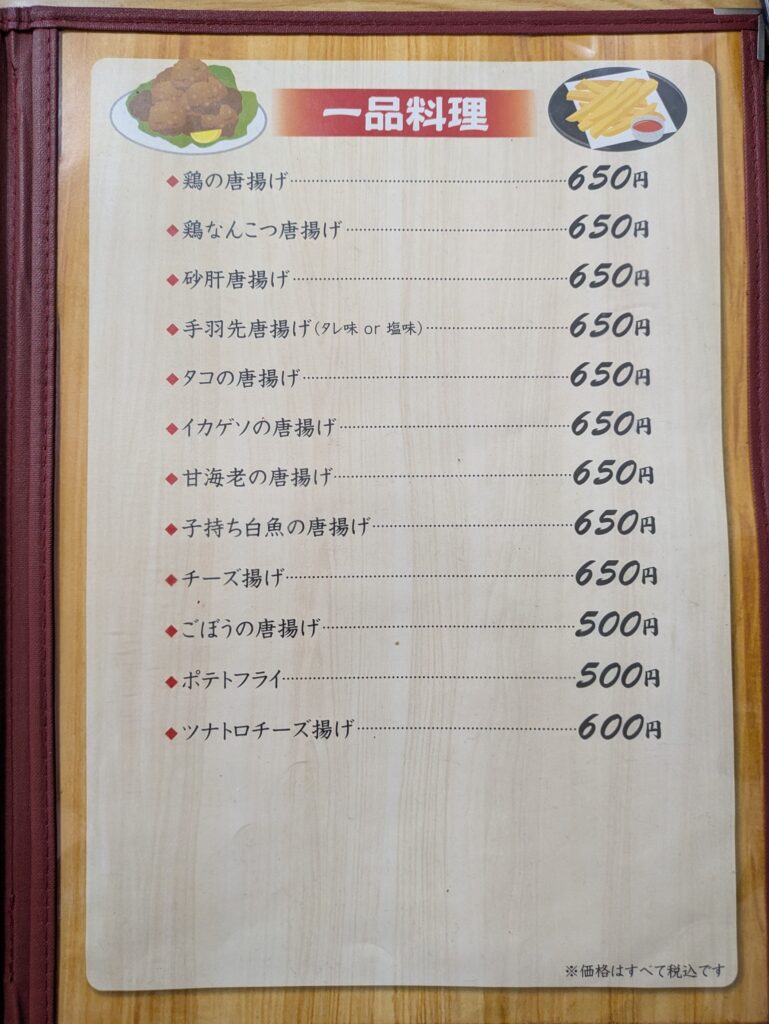 一品料理
◆鶏の唐揚げ…………650円
◆鶏なんこつ唐揚げ…………650円
◆砂肝唐揚げ…………650円
◆手羽先唐揚げ(タレ味 or 塩味)…………650円
◆タコの唐揚げ…………650円
◆イカゲソの唐揚げ…………650円
◆甘海老の唐揚げ…………650円
◆子持ち白魚の唐揚げ…………650円
◆チーズ揚げ…………650円
◆ごぼうの唐揚げ…………500円
◆ポテトフライ…………500円
◆ツナトロチーズ揚げ…………600円
※価格はすべて税込です